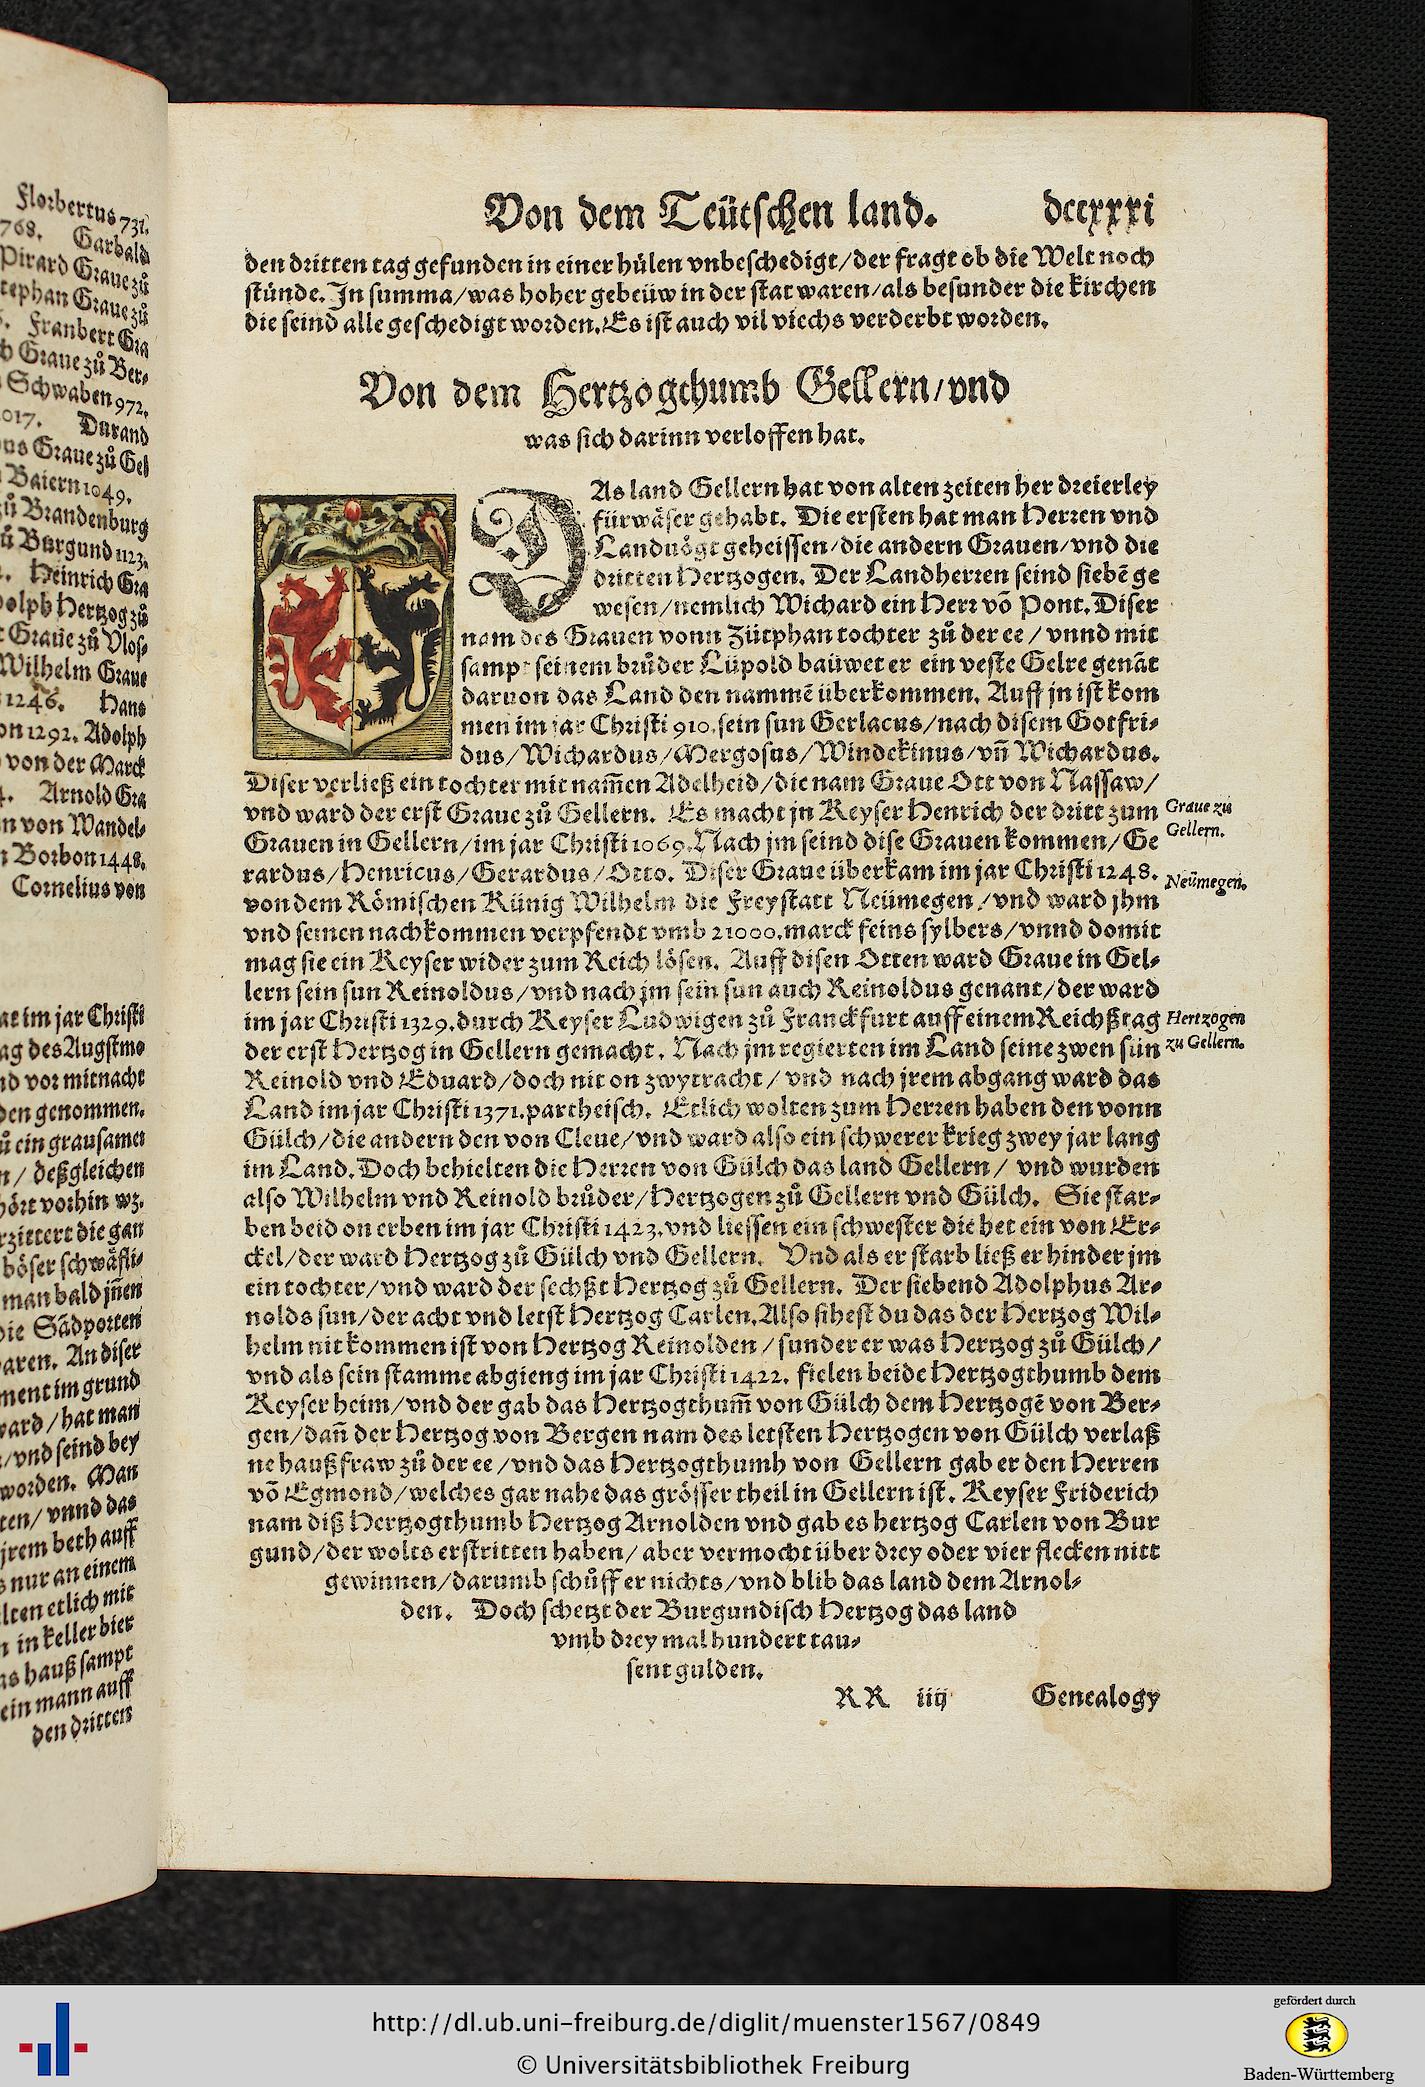 Florbertus 731.
768. Garbald
Pirard Graue zů
tephan Graue zů
Franbert Gra
Graue zů Ber⸗
Schwaben 972.
1017. Durand
Graue zů Gel
Baiern 1049.
zů Brandenburg
ů Burgund 1123.
Heinrich Gra
dolph Hertzog zů
Graue zů Vlos⸗
Wilhelm Graue
1246. Hans
von 1292. Adolph
von der Marck
4. Arnold Gra
n von Wandel⸗
Borbon 1448.
Cornelius von
at im jar Christi
ag des Augstmo
nd vor mitnacht
den genommen.
ů ein grausamer
n / deßgleichen
hört vorhin wz.
rzittert die gan
böser schwäfli⸗
man bald jnen
die Sādporten
waren. An diser
ment im grund
ward / hat man
/ vnd seind bey
worden. Man
ten / vnnd das
jrem beth auff
s nur an einem
lten etlich mit
n in keller bier
as hauß sampt
ein mann auff
den dritten
Von dem Teütschen land. dccxxxi
den dritten tag gefunden in einer hülen vnbeschedigt / der fragt ob die Welt noch
stünde. In summa / was hoher gebeüw in der stat waren / als besunder die kirchen
die seind alle geschedigt worden. Es ist auch vil viechs verderbt worden.
Von dem Hertzogthumb Gellern / vnd
was sich darinn verloffen hat.
DAs land Gellern hat von alten zeiten her dreierley
fürwäser gehabt. Die ersten hat man Herren vnd
Landuögt geheissen / die andern Grauen / vnd die
dritten Hertzogen. Der Landherren seind siebē ge
wesen / nemlich Wichard ein Herr vō Pont. Diser
nam des Grauen vonn Zütphan tochter zů der ee / vnnd mit
sampt seinem brůder Lüpold baüwet er ein veste Gelre genāt
daruon das Land den nammē überkommen. Auff jn ist kom
men im jar Christi 910. sein sun Gerlacus / nach disem Gotfri⸗
dus / Wichardus / Mergosus / Windekinus / vn̄ Wichardus.
Diser verließ ein tochter mit nam̄en Adelheid / die nam Graue Ott von Nassaw /
vnd ward der erst Graue zů Gellern. Es macht jn Keyser Henrich der dritt zum
Grauen in Gellern / im jar Christi 1069. Nach jm seind dise Grauen kommen / Ge
rardus / Henricus / Gerardus / Otto. Diser Graue überkam im jar Christi 1248.
von dem Römischen Künig Wilhelm die Freystatt Neümegen / vnd ward jhm
vnd seinen nachkommen verpfendt vmb 21000. marck feins sylbers / vnnd domit
mag sie ein Keyser wider zum Reich lösen. Auff disen Otten ward Graue in Gel⸗
lern sein sun Reinoldus / vnd nach jm sein sun auch Reinoldus genant / der ward
im jar Christi 1329. durch Keyser Ludwigen zů Franckfurt auff einem Reichßtag
der erst Hertzog in Gellern gemacht. Nach jm regierten im Land seine zwen sün
Reinold vnd Eduard / doch nit on zwytracht / vnd nach jrem abgang ward das
Land im jar Christi 1371. partheisch. Etlich wolten zum Herren haben den vonn
Gülch / die andern den von Cleue / vnd ward also ein schwerer krieg zwey jar lang
im Land. Doch behielten die Herren von Gülch das land Gellern / vnd wurden
also Wilhelm vnd Reinold brůder / Hertzogen zů Gellern vnd Gülch. Sie star⸗
ben beid on erben im jar Christi 1423. vnd liessen ein schwester die het ein von Er⸗
ckel / der ward Hertzog zů Gülch vnd Gellern. Vnd als er starb ließ er hinder jm
ein tochter / vnd ward der sechßt Hertzog zů Gellern. Der siebend Adolphus Ar⸗
nolds sun / der acht vnd letst Hertzog Carlen. Also sihest du das der Hertzog Wil⸗
helm nit kommen ist von Hertzog Reinolden / sunder er was Hertzog zů Gülch /
vnd als sein stamme abgieng im jar Christi 1422. fielen beide Hertzogthumb dem
Keyser heim / vnd der gab das Hertzogthum̄ von Gülch dem Hertzogē von Ber⸗
gen / dan̄ der Hertzog von Bergen nam des letsten Hertzogen von Gülch verlaß
ne haußfraw zů der ee / vnd das Hertzogthumb von Gellern gab er den Herren
vō Egmond / welches gar nahe das grösser theil in Gellern ist. Keyser Friderich
nam diß Hertzogthumb Hertzog Arnolden vnd gab es hertzog Carlen von Bur
gund / der wolts erstritten haben / aber vermocht über drey oder vier flecken nitt
gewinnen / darumb schůff er nichts / vnd blib das land dem Arnol⸗
den. Doch schetzt der Burgundisch Hertzog das land
vmb drey mal hundert tau⸗
sent gulden.
RR iiij Genealogy
Graue zů
Gellern.
Neümegen.
Hertzogen
zu Gellern.
http://dl.ub.uni-freiburg.de/diglit/muenster1567/0849
© Universitätsbibliothek Freiburg
gefördert durch
Baden-Württemberg